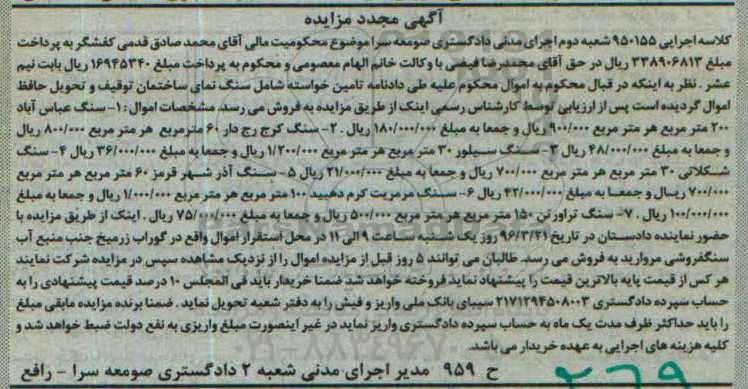 آگهی مجدد مزایده
کلاسه اجرایی ۹۵۰۱۵۵ شعبه دوم اجرای مدنی دادگستری صومعه سرا موضوع محکومیت مالی آقای محمد صادق قدمی کفشگر به پرداخت
مبلغ ۳۳۸۹۰۶۸۱۳ ریال در حق آقای محمدرضا فیضی با وکالت خانم الهام معصومی و محکوم به پرداخت مبلغ ۱۶۹۴۵۳۴۰ ریال بابت نیم
عشر . نظر به اینکه در قبال محکوم به اموال محکوم علیه طی دادنامه تامین خواسته شامل سنگ نمای ساختمان توقیف و تحویل حافظ
اموال گردیده است پس از ارزیابی توسط کارشناس رسمی اینک از طریق مزایده به فروش می رسد. مشخصات اموال : ۱- سنگ عباس آباد
۲۰۰ متر مربع هر متر مربع ۹۰۰/۰۰۰ ریال و جمعا به مبلغ ۱۸۰/۰۰۰/۰۰۰ ریال . ۲- سنگ کرج رج دار ۶۰ مترمربع هر متر مربع ۸۰۰/۰۰۰ ریال
و جمعا به مبلغ ۴۸/۰۰۰/۰۰۰ ریال ۳- سنگ سیلور ۳۰ متر مربع هر متر مربع ۱/۲۰۰/۰۰۰ ریال و جمعا به مبلغ ۳۶/۰۰۰/۰۰۰ ریال ۴- سنگ
شکلاتی ۳۰ متر مربع هر متر مربع ۷۰۰/۰۰۰ ریال و جمعا به مبلغ ۲۱/۰۰۰/۰۰۰ ریال ۵- سنگ آذر شهر قرمز ۶۰ متر مربع هر متر مربع
۷۰۰/۰۰۰ ریال و جمعا به مبلغ ۴۲/۰۰۰/۰۰۰ ریال ۶- سنگ مرمریت کرم دهبید ۱۰۰ متر مربع هر متر مربع ۱/۰۰۰/۰۰۰ ریال و جمعا به مبلغ
۱۰۰/۰۰۰/۰۰۰ ریال . ۷- سنگ تراورتن ۱۵۰ متر مربع هر متر مربع ۵۰۰/۰۰۰ ریال و جمعا به مبلغ ۷۵/۰۰۰/۰۰۰ ریال . اینک از طریق مزایده با
حضور نماینده دادستان در تاریخ ۹۶/۳/۲۱ روز یک شنبه ساعت ۹ الی ۱۱ در محل استقرار اموال واقع در گوراب زرمیخ جنب منبع آب
سنگفروشی مروارید به فروش می رسد. طالبان می توانند ۵ روز قبل از مزایده اموال را از نزدیک مشاهده سپس در مزایده شرکت نمایند
هر کس از قیمت پایه بالاترین قیمت را پیشنهاد نماید فروخته خواهد شد ضمنا خریدار باید فی المجلس ۱۰ درصد قیمت پیشنهادی را به
حساب سپرده دادگستری ۲۱۷۱۲۹۴۵۰۸۰۰۳ سیبای بانک ملی واریز و فیش را به دفتر شعبه تحویل نماید . ضمنا برنده مزایده مابقی مبلغ
را باید حداکثر ظرف مدت یک ماه به حساب سپرده دادگستری واریز نماید در غیر اینصورت مبلغ واریزی به نفع دولت ضبط خواهد شد و
کلیه هزینه های اجرایی به عهده خریدار می باشد.
ح ۹۵۹ مدیر اجرای مدنی شعبه ۲ دادگستری صومعه سرا - رافع